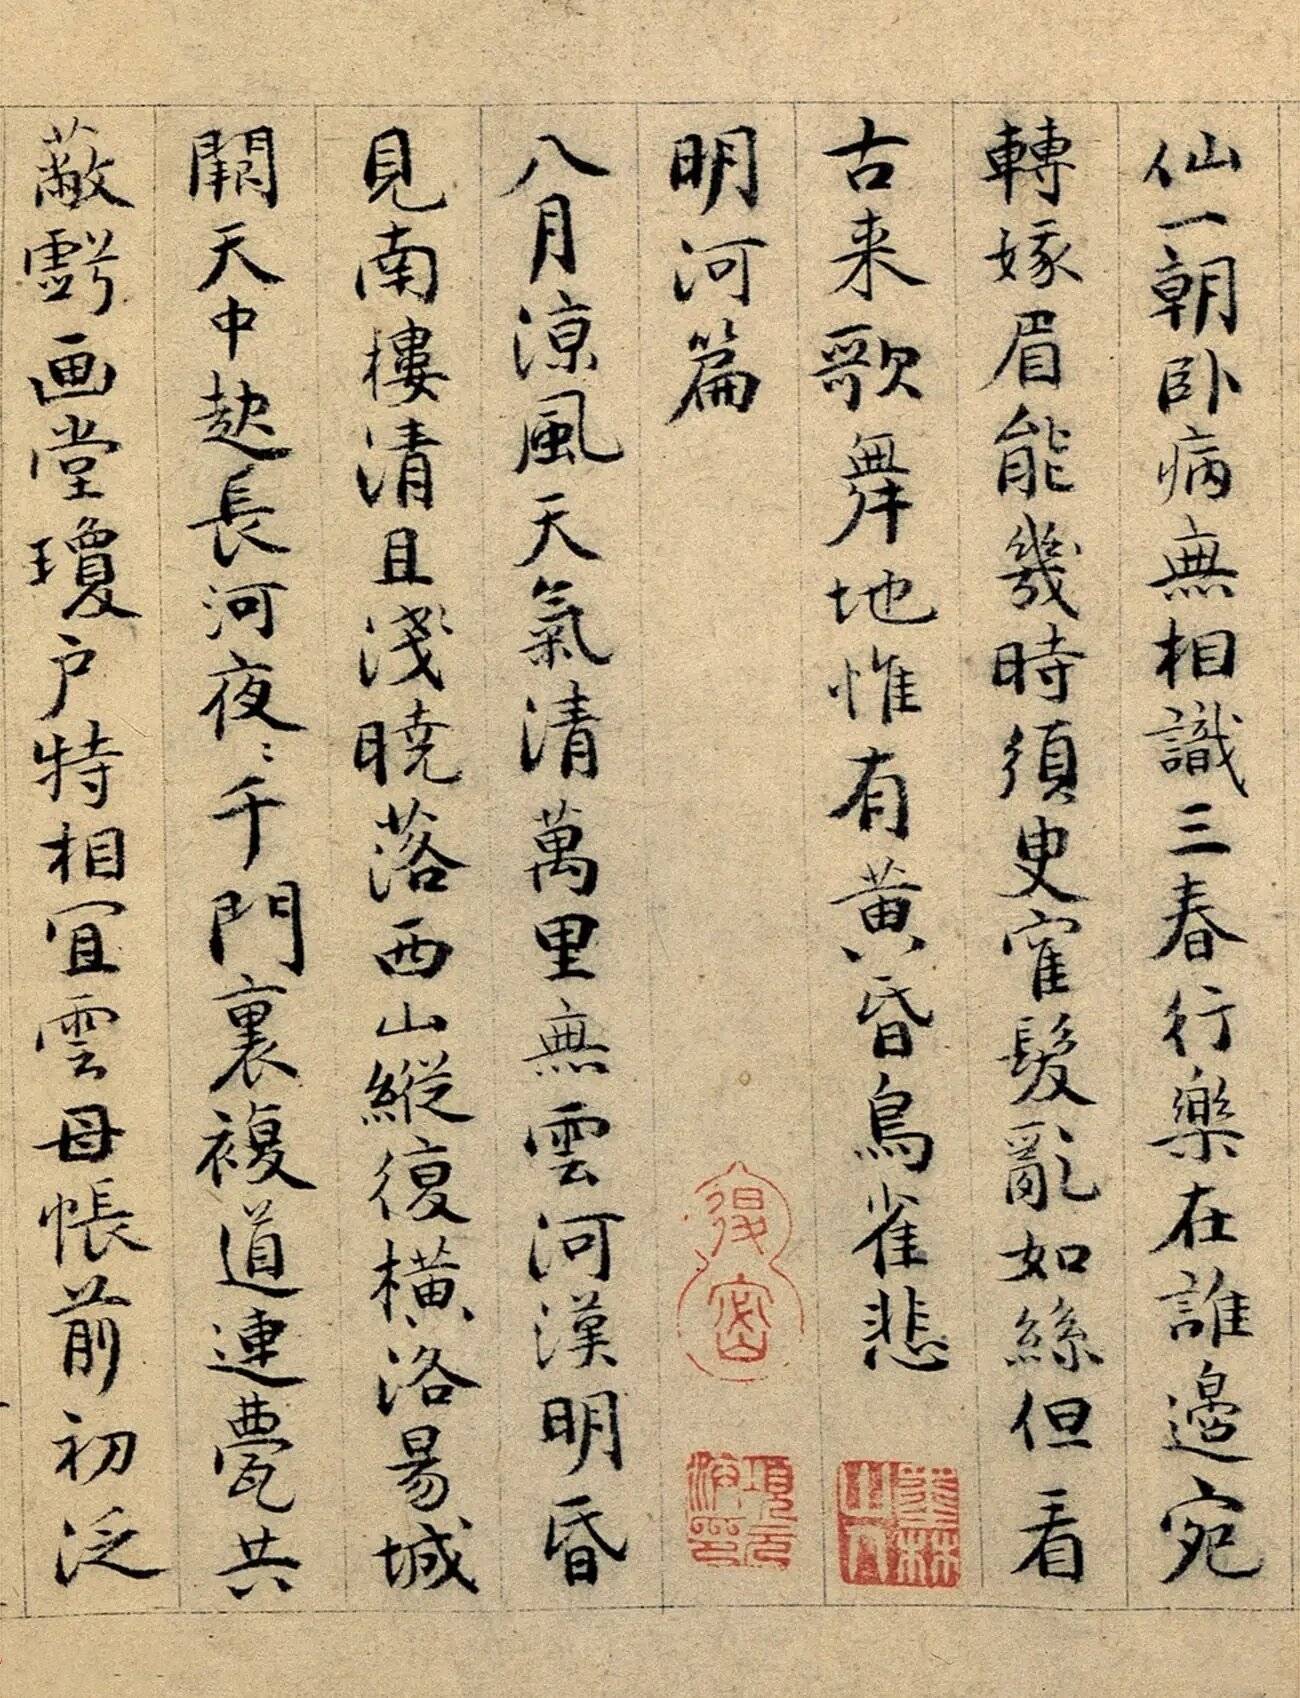 仙一朝卧病無相識三春行樂在誰邊宛
轉娥眉能幾時須臾寉髮亂如絲但看
古来歌舞地惟有黄昏鳥雀悲
明河篇
八月涼風天氣清萬里無雲河漢明昏
見南樓清且淺曉落西山縱復橫洛昜城
闕天中起長河夜〻千門裏複道連甍共
蔽虧画堂瓊户特相宜雲母帳前初泛
墨林山人
退密
項元汴印